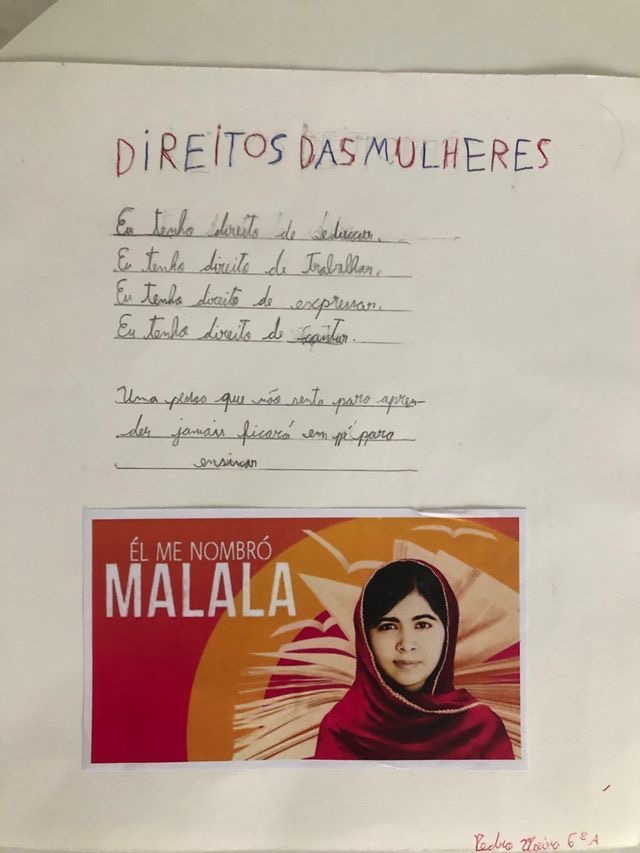 DiREiTOS DAS MULHERES
Eu tenho direito de educar.
Eu tenho direito de Trabalhar.
Eu tenho direito de expressar.
Eu tenho direito de cantar.
Uma pessoa que não senta para apren-
der jamais ficará em pé para
ensinar
ÉL ME NOMBRÓ
MALALA
Pedro 6º A